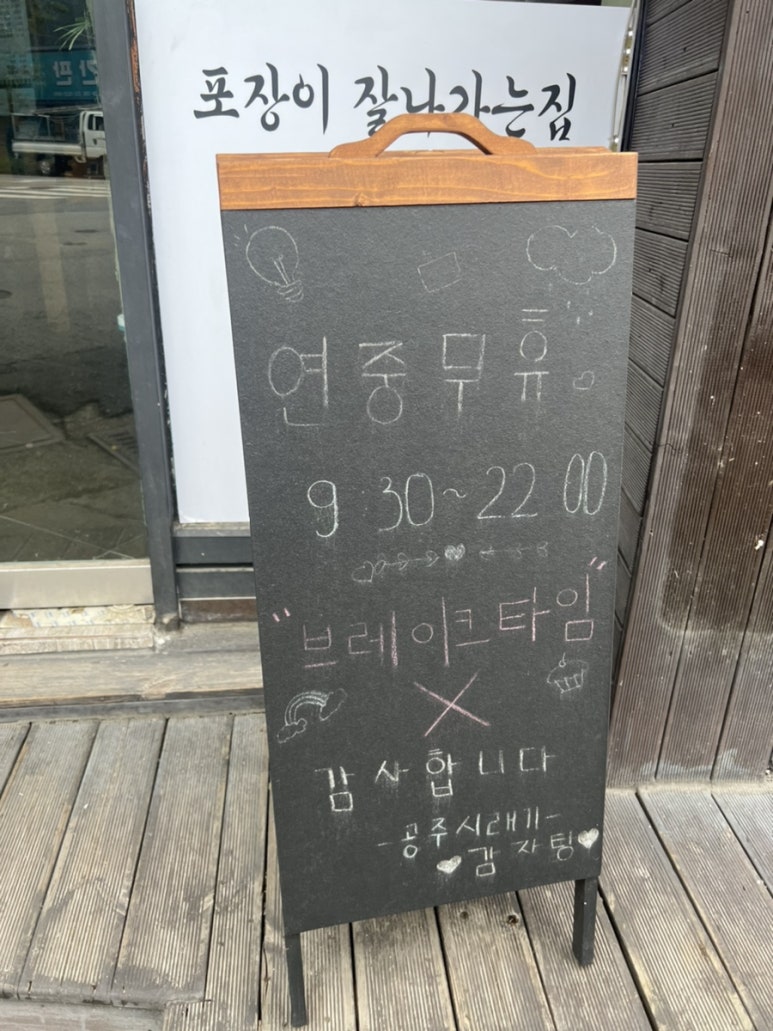 포장이 잘나가는집
연중무휴
9:30~22:00
"브레이크타임"
X
감사합니다
-공주시래기-
감자팅